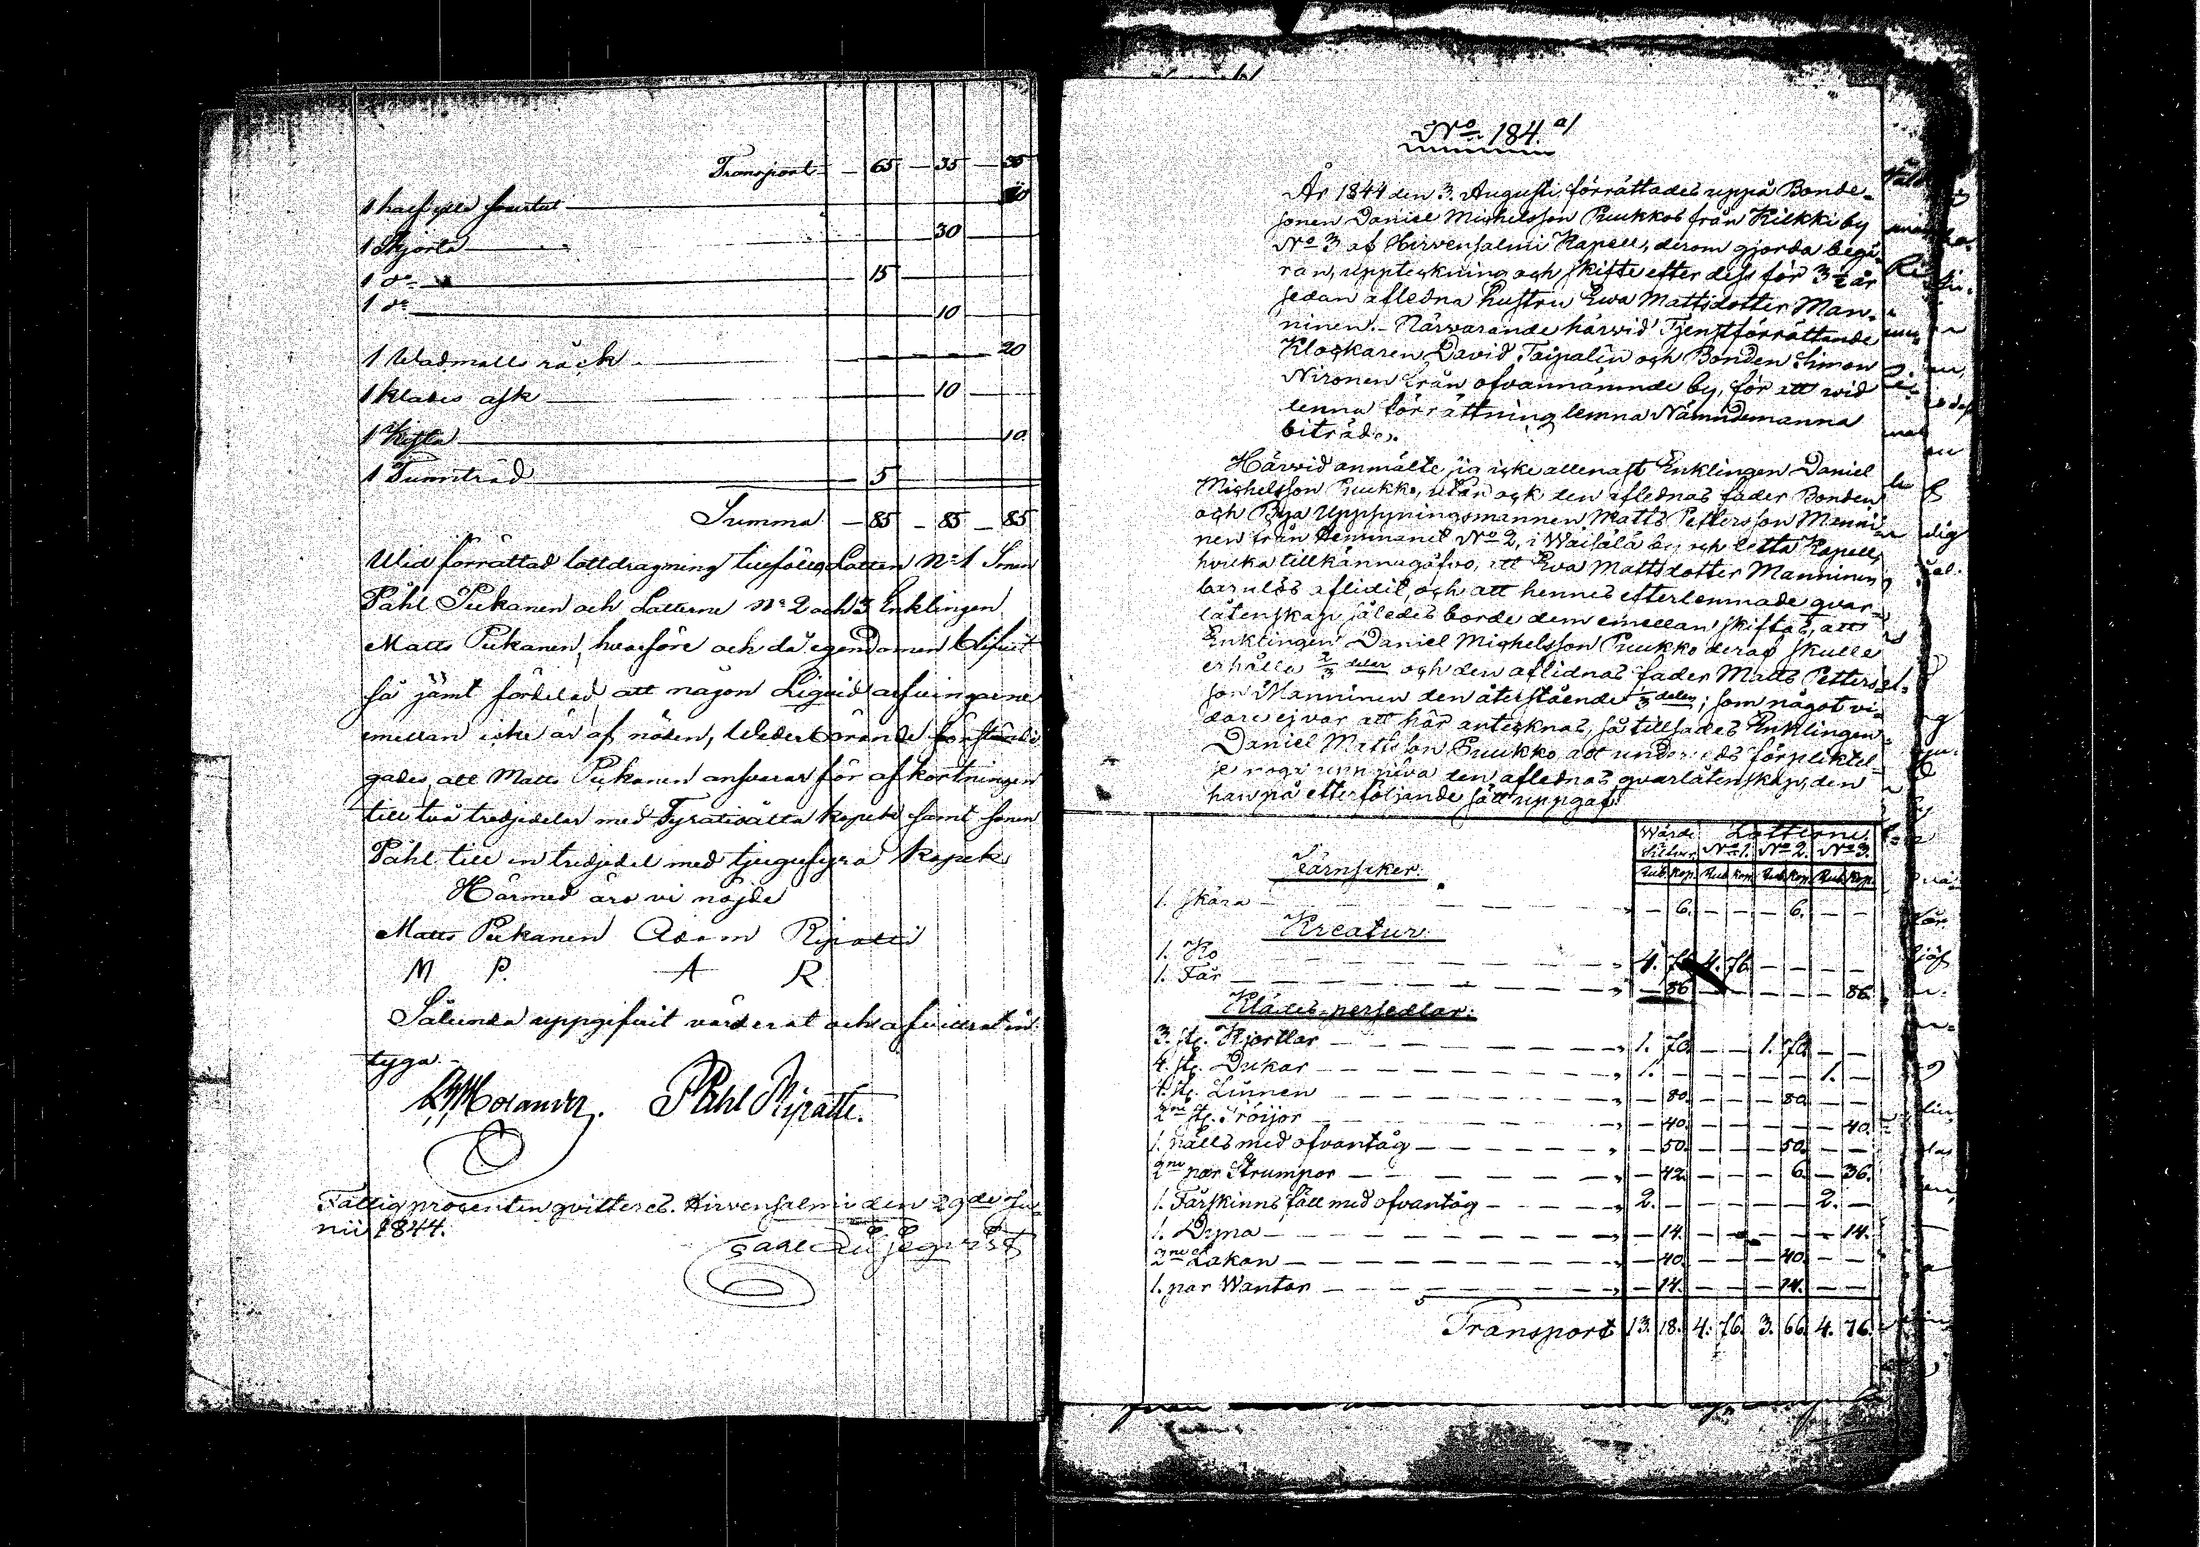 Transport — 65 — 35 — 35
1 half ylle
1 Skjorta 30
1 do 15
1 do 10
1 Wadmalls råck 20
1 klädes ask 10
1 Kista 10
1 Tunnträd 5
Summa — 85 — 85 — 85
Wid förrättad lottdragning tillföllo Lotten No 1 Sonen
Påhl Pukanen och Lotterne No 2 och 3 Enklingen
Matts Pukanen, hvarföre och då egendomen blifvit
så jämt fördelad, att någon Liquid arfvingarne
emellan icke är af nöden, Wederbörande förständi
gades, att Matts Pukanen ansvarar för afkortningen
till två tredjedelar med Fyratioåtta kopek samt sonen
Påhl till en tredjedel med tjugufyra kopek
Härmed äro vi nöjde
Matts Pukanen Adam Ripatti
M P. A R
Sålunda uppgifvit värderat och afvittrat in
tyga
Påhl Ripatti.
Fattigprocenten qvitteras. Hirvensalmi den 29de Ju
nii 1844.
No 184 a/
År 1844 den 3. Augusti, förrättades uppå Bonde-
sonen Daniel Michelsson Puukkos från Kilkki by
No 3 af Hirvensalmi Kapell, derom gjorda begä-
ran, uppteckning och skifte efter dess för 3 ½ år
sedan aflidna hustru Ewa Mattsdotter Man-
ninen. Närvarande härvid Tjenstförrättande
Klockaren David Taipalin och Bonden Simon
Nironen från ofvannämnde by, för att vid
denna förrättning lemna Nämndemanna
biträde.
Härvid anmälte sig icke allenast Enklingen Daniel
Michelsson Puukko, utan ock den aflednas fader Bonden
och Bya Uppsyningsmannen Matts Pettersson Manni-
nen från Hemmanet No 2, i Waisälä by och detta Kapell,
hvilka tillkännagåfvo, att Eva Mattsdotter Manninen
barnlös aflidit, och att hennes efterlemnade qvar-
låtenskap således borde dem emellan skiftas, att
Enklingen Daniel Michelsson Puukko deraf skulle
erhålla 2/3 delar och den aflidnas fader Matts Petters-
son Manninen den återstående 1/3 delen; som något vi-
dare ej var att här antecknas, så tillsades Enklingen
Daniel Mattsson Puukko att under eds förpliktel-
se noga uppgifva den aflednas qvarlåtenskap, den
han på efterföljande sätt uppgaf:
Wärde Silfver. Lotterne. No 1. No 2. No 3.
Rub Kop. Rub Kop. Rub Kop. Rub Kop.
Järnsaker.
1. skära — 6. — — — 6. — —
Kreatur.
1. Ko 4. 76 4. 76. — — — —
1. Får — 86 — — — — — 86.
Klädes persedlar.
3. st. Kjortlar 1. 70. — — 1. 70. — —
4. st. Dukar 1. — — — — — 1. —
4. st. Linnen — 80. — — — 80. — —
2ne st. Tröijor — 40. — — — — — 40.
1. Fälls med ofvantåg — 50. — — — 50. — —
2ne par Strumpor — 42. — — — 6. — 36.
1. Fårskinns fäll med ofvantåg 2. — — — — — 2. —
1. Dyna — 14. — — — — — 14.
2ne st Lakan — 40. — — — 40. — —
1. par Wantar — 14. — — — 14. — —
Transport 13. 18. 4. 76. 3. 66. 4. 76.